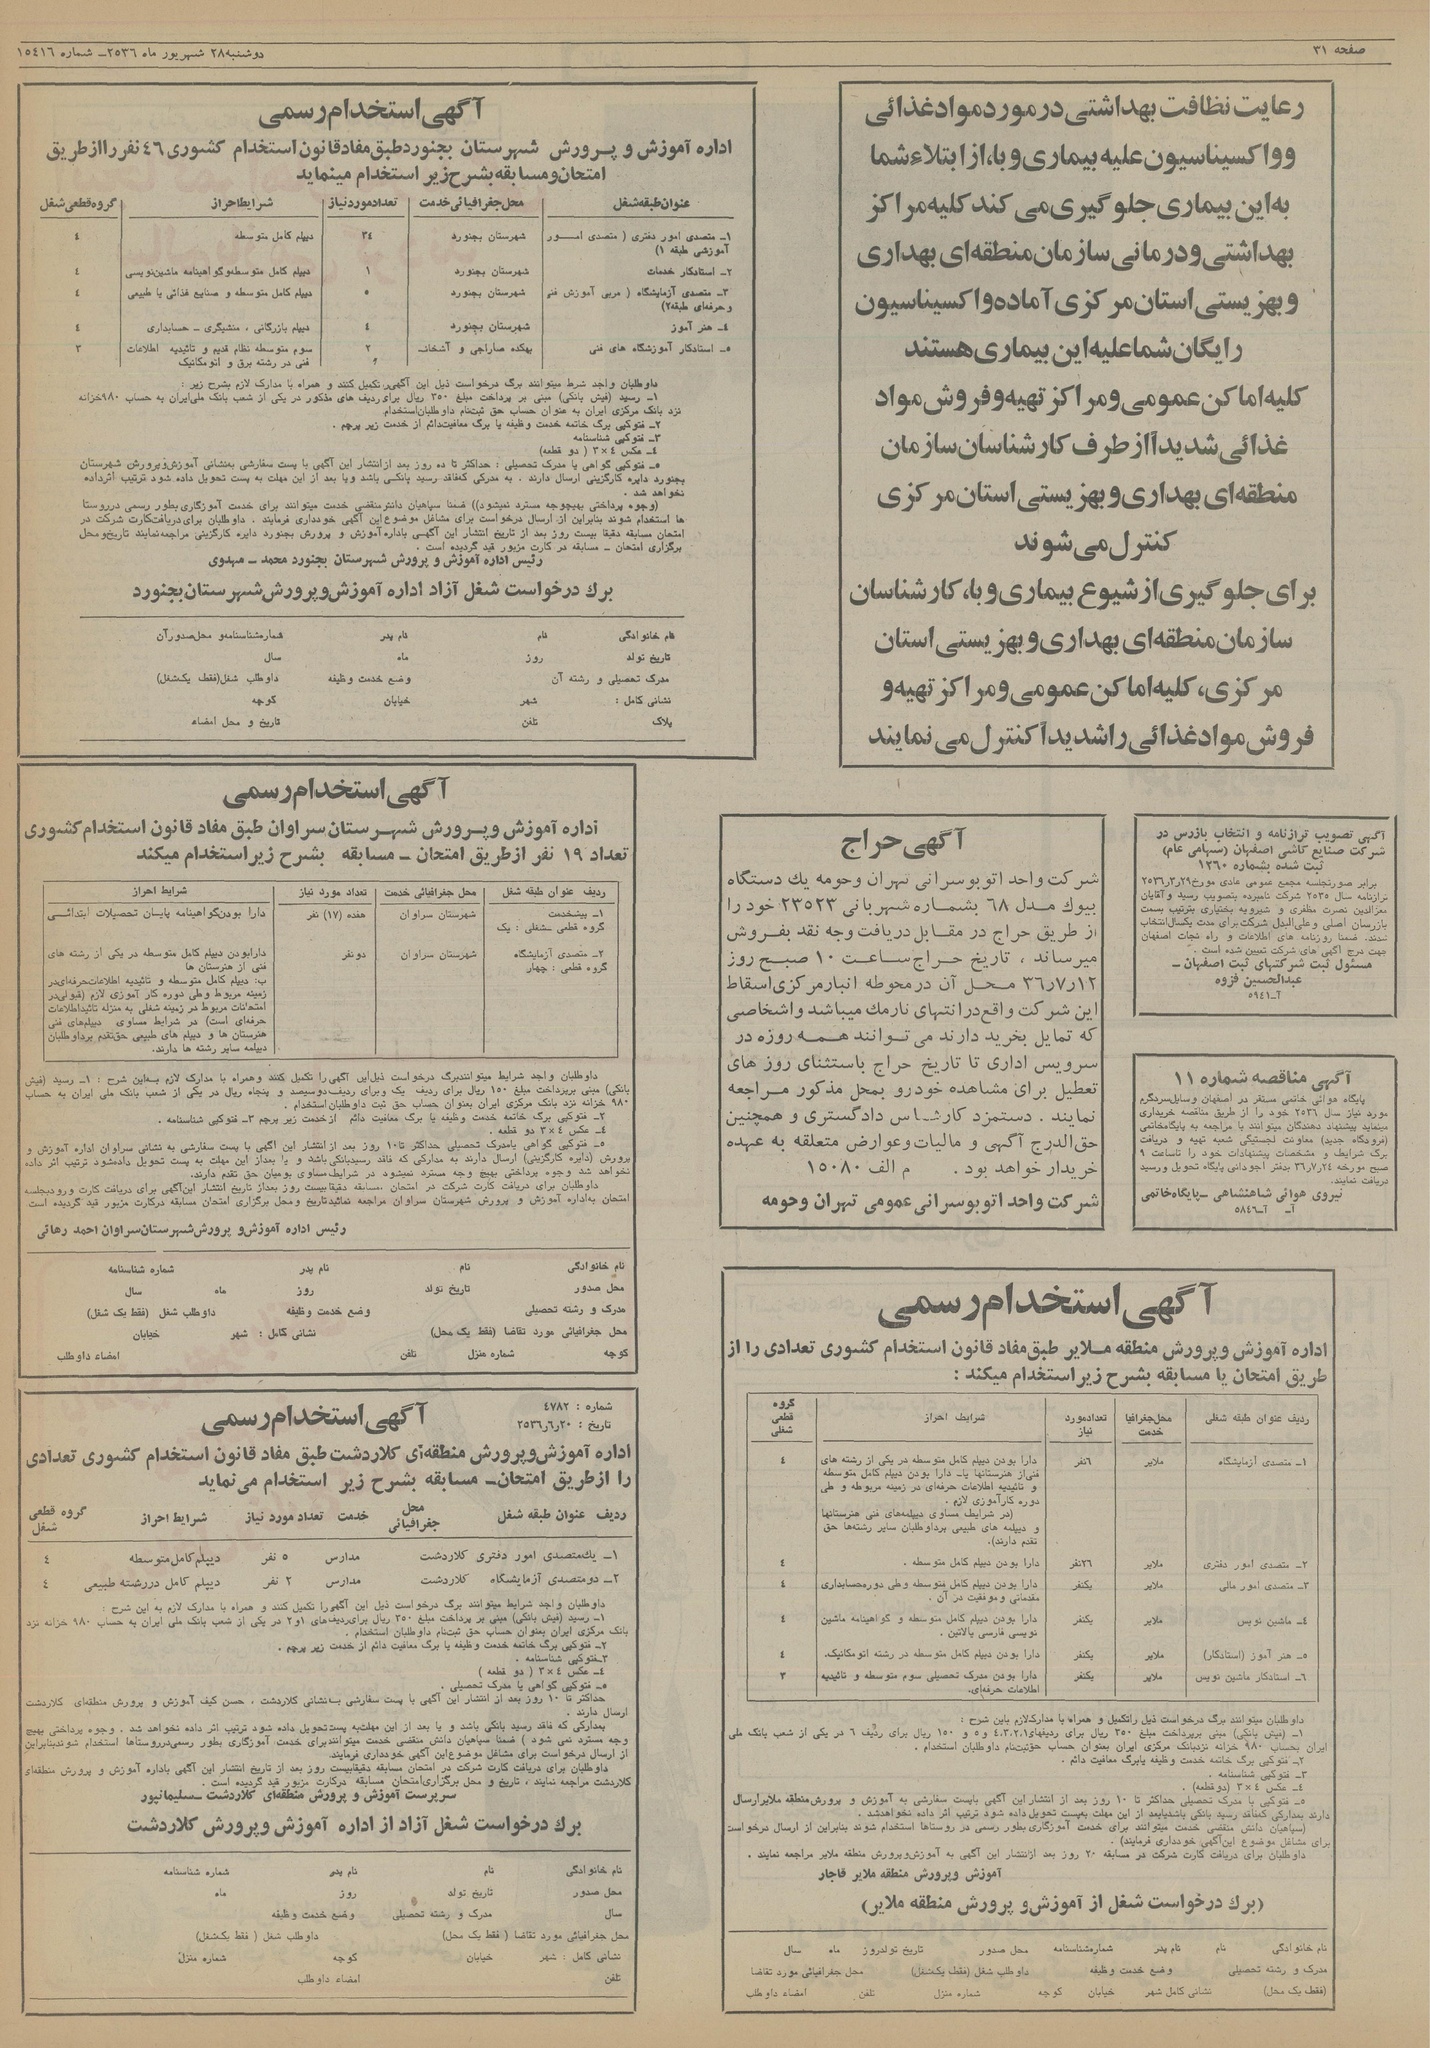 صفحه ۳۱
دوشنبه ۲۸ شهریور ماه ۲۵۳۶ـ شماره ۱۵۴۱۶
رعایت نظافت بهداشتی در مورد مواد غذائی
وواکسیناسیون علیه بیماری وبا، از ابتلاء شما
به این بیماری جلوگیری می کند کلیه مراکز
بهداشتی و درمانی سازمان منطقه ای بهداری
و بهزیستی استان مرکزی آماده واکسیناسیون
رایگان شما علیه این بیماری هستند
کلیه اماکن عمومی و مراکز تهیه و فروش مواد
غذائی شدیداً از طرف کارشناسان سازمان
منطقه ای بهداری و بهزیستی استان مرکزی
کنترل می شوند
برای جلوگیری از شیوع بیماری وبا، کارشناسان
سازمان منطقه ای بهداری و بهزیستی استان
مرکزی، کلیه اماکن عمومی و مراکز تهیه و
فروش مواد غذائی را شدیداً کنترل می نمایند
آگهی استخدام رسمی
اداره آموزش و پرورش شهرستان بجنورد طبق مفاد قانون استخدام کشوری ۴۶ نفر را از طریق
امتحان و مسابقه بشرح زیر استخدام مینماید
عنوان طبقه شغل محل جغرافیائی خدمت تعداد مورد نیاز شرایط احراز گروه قطعی شغل
۱ـ متصدی امور دفتری ( متصدی امور شهرستان بجنورد ۳۴ دیپلم کامل متوسطه ۴
آموزشی طبقه ۱)
۲ـ استادکار خدمات شهرستان بجنورد ۱ دیپلم کامل متوسطه و گواهینامه ماشین نویسی ۴
۳ـ متصدی آزمایشگاه ( مربی آموزش فنی شهرستان بجنورد ۵ دیپلم کامل متوسطه و صنایع غذائی یا طبیعی ۴
و حرفه ای طبقه ۲)
۴ـ هنر آموز شهرستان بجنورد ۴ دیپلم بازرگانی ، منشیگری ـ حسابداری ۴
۵ـ استادکار آموزشگاه های فنی ۲ سوم متوسطه نظام قدیم و تائیدیه اطلاعات ۳
فنی در رشته برق و اتومکانیک
داوطلبان واجد شرط میتوانند برگ درخواست ذیل این آگهی تکمیل کنند و همراه با مدارک لازم بشرح زیر :
۱ـ رسید (فیش بانکی) مبنی بر پرداخت مبلغ ۳۵۰ ریال برای ردیف های مذکور در یکی از شعب بانک ملی ایران به حساب ۹۸۰ خزانه
نزد بانک مرکزی ایران به عنوان حساب حق ثبت نام داوطلبان استخدام.
۲ـ فتوکپی برگ خاتمه خدمت وظیفه یا برگ معافیت دائم از خدمت زیر پرچم .
۳ـ فتوکپی شناسنامه
۴ـ عکس ۴×۳ ( دو قطعه)
۵ـ فتوکپی گواهی یا مدرک تحصیلی : حداکثر تا ده روز بعد از انتشار این آگهی با پست سفارشی به نشانی آموزش و پرورش شهرستان
بجنورد دایره کارگزینی ارسال دارند . به مدرکی که فاقد رسید بانکی باشد و یا بعد از این مهلت به پست تحویل داده شود ترتیب اثر داده
نخواهد شد .
(وجوه پرداختی بهیچوجه مسترد نمیشود)) ضمنا سپاهیان دانش منقضی خدمت میتوانند برای خدمت آموزگاری بطور رسمی در روستا
ها استخدام شوند بنابراین از ارسال درخواست برای مشاغل موضوع این آگهی خودداری فرمایند . داوطلبان برای دریافت کارت شرکت در
امتحان مسابقه دقیقا بیست روز بعد از تاریخ انتشار این آگهی باداره آموزش و پرورش بجنورد دایره کارگزینی مراجعه نمایند تاریخ و محل
برگزاری امتحان ـ مسابقه در کارت مزبور قید گردیده است .
رئیس اداره آموزش و پرورش شهرستان بجنورد محمد ـ مهدوی
برگ درخواست شغل آزاد اداره آموزش و پرورش شهرستان بجنورد
نام خانوادگی نام نام پدر شماره شناسنامه و محل صدور آن
تاریخ تولد روز ماه سال
مدرک تحصیلی و رشته آن وضع خدمت وظیفه داوطلب شغل (فقط یک شغل)
نشانی کامل : شهر خیابان کوچه
پلاک تلفن تاریخ و محل امضاء
آگهی استخدام رسمی
اداره آموزش و پرورش شهرستان سراوان طبق مفاد قانون استخدام کشوری
تعداد ۱۹ نفر از طریق امتحان ـ مسابقه بشرح زیر استخدام میکند
ردیف عنوان طبقه شغل محل جغرافیائی خدمت تعداد مورد نیاز شرایط احراز
۱ـ پیشخدمت شهرستان سراوان هفده (۱۷) نفر دارا بودن گواهینامه پایان تحصیلات ابتدائی
گروه قطعی شغلی : یک
۲ـ متصدی آزمایشگاه شهرستان سراوان دو نفر دارا بودن دیپلم کامل متوسطه در یکی از رشته های
گروه قطعی : چهار فنی از هنرستان ها
ب: دیپلم کامل متوسطه و تائیدیه اطلاعات حرفه ای در
زمینه مربوط و طی دوره کار آموزی لازم (قبولی در
امتحانات مربوط در زمینه شغلی به منزله تائید اطلاعات
حرفه ای است) در شرایط مساوی دیپلم های فنی
هنرستان ها و دیپلم های طبیعی حق تقدم بر داوطلبان
دیپلمه سایر رشته ها دارند.
داوطلبان واجد شرایط میتوانند برگ درخواست ذیل این آگهی را تکمیل کنند و همراه با مدارک لازم به این شرح : ۱ـ رسید (فیش
بانکی) مبنی بر پرداخت مبلغ ۱۵۰ ریال برای ردیف یک و برای ردیف دو سیصد و پنجاه ریال در یکی از شعب بانک ملی ایران به حساب
۹۸۰ خزانه نزد بانک مرکزی ایران بعنوان حساب حق ثبت داوطلبان استخدام .
۲ـ فتوکپی برگ خاتمه خدمت وظیفه یا برگ معافیت دائم از خدمت زیر پرچم ۳ـ فتوکپی شناسنامه .
۴ـ عکس ۴×۳ دو قطعه .
۵ـ فتوکپی گواهی یا مدرک تحصیلی حداکثر تا ۱۰ روز بعد از انتشار این آگهی با پست سفارشی به نشانی سراوان اداره آموزش و
پرورش (دایره کارگزینی) ارسال دارند به مدارکی که فاقد رسید بانکی باشد و یا بعد از این مهلت به پست تحویل داده شود ترتیب اثر داده
نخواهد شد وجوه پرداختی بهیچ وجه مسترد نمیشود در شرایط مساوی بومیان حق تقدم دارند.
داوطلبان برای دریافت کارت شرکت در امتحان مسابقه دقیقا بیست روز بعد از تاریخ انتشار این آگهی برای دریافت کارت ورود به جلسه
امتحان به اداره آموزش و پرورش شهرستان سراوان مراجعه نمائید تاریخ و محل برگزاری امتحان مسابقه در کارت مزبور قید گردیده است
رئیس اداره آموزش و پرورش شهرستان سراوان احمد رهائی
نام خانوادگی نام نام پدر شماره شناسنامه
محل صدور تاریخ تولد روز ماه سال
مدرک و رشته تحصیلی وضع خدمت وظیفه داوطلب شغل (فقط یک شغل)
محل جغرافیائی مورد تقاضا (فقط یک محل) نشانی کامل : شهر خیابان
کوچه شماره منزل تلفن امضاء داوطلب
شماره : ۴۷۸۲
تاریخ : ۲۵۳۶٫۶٫۲۰
آگهی استخدام رسمی
اداره آموزش و پرورش منطقه ای کلاردشت طبق مفاد قانون استخدام کشوری تعدادی
را از طریق امتحان ـ مسابقه بشرح زیر استخدام می نماید
ردیف عنوان طبقه شغل محل جغرافیائی خدمت تعداد مورد نیاز شرایط احراز گروه قطعی شغل
۱ـ یک متصدی امور دفتری کلاردشت مدارس ۵ نفر دیپلم کامل متوسطه ۴
۲ـ دو متصدی آزمایشگاه کلاردشت مدارس ۲ نفر دیپلم کامل در رشته طبیعی ۴
داوطلبان واجد شرایط میتوانند برگ درخواست ذیل این آگهی را تکمیل کنند و همراه با مدارک لازم به این شرح :
۱ـ رسید (فیش بانکی) مبنی بر پرداخت مبلغ ۳۵۰ ریال برای ردیف های ۱ و ۲ در یکی از شعب بانک ملی ایران به حساب ۹۸۰ خزانه نزد
بانک مرکزی ایران بعنوان حساب حق ثبت نام داوطلبان استخدام .
۲ـ فتوکپی برگ خاتمه خدمت وظیفه یا برگ معافیت دائم از خدمت زیر پرچم .
۳ـ فتوکپی شناسنامه .
۴ـ عکس ۴×۳ ( دو قطعه )
۵ـ فتوکپی گواهی یا مدرک تحصیلی .
حداکثر تا ۱۰ روز بعد از انتشار این آگهی با پست سفارشی به نشانی کلاردشت ، حسن کیف آموزش و پرورش منطقه ای کلاردشت
ارسال دارند .
بمدارکی که فاقد رسید بانکی باشد و یا بعد از این مهلت به پست تحویل داده شود ترتیب اثر داده نخواهد شد . وجوه پرداختی بهیچ
وجه مسترد نمی شود ) ضمنا سپاهیان دانش منقضی خدمت میتوانند برای خدمت آموزگاری بطور رسمی در روستاها استخدام شوند بنابراین
از ارسال درخواست برای مشاغل موضوع این آگهی خودداری فرمایند.
داوطلبان برای دریافت کارت شرکت در امتحان مسابقه دقیقا بیست روز بعد از تاریخ انتشار این آگهی باداره آموزش و پرورش منطقه ای
کلاردشت مراجعه نمایند ، تاریخ و محل برگزاری امتحان مسابقه در کارت مزبور قید گردیده است .
سرپرست آموزش و پرورش منطقه ای کلاردشت ـ سلیمانپور
برگ درخواست شغل آزاد از اداره آموزش و پرورش کلاردشت
نام خانوادگی نام نام پدر شماره شناسنامه
محل صدور تاریخ تولد روز ماه
سال مدرک و رشته تحصیلی وضع خدمت وظیفه
محل جغرافیائی مورد تقاضا ( فقط یک محل) داوطلب شغل ( فقط یک شغل)
نشانی کامل : شهر خیابان کوچه شماره منزل
تلفن امضاء داوطلب
آگهی حراج
شرکت واحد اتوبوسرانی تهران و حومه یک دستگاه
بیوک مدل ۶۸ بشماره شهربانی ۲۳۵۲۳ خود را
از طریق حراج در مقابل دریافت وجه نقد بفروش
میرساند ، تاریخ حراج ساعت ۱۰ صبح روز
۳۶٫۷٫۱۲ محل آن در محوطه انبار مرکزی اسقاط
این شرکت واقع در انتهای نارمک میباشد و اشخاصی
که تمایل بخرید دارند می توانند همه روزه در
سرویس اداری تا تاریخ حراج باستثنای روز های
تعطیل برای مشاهده خودرو بمحل مذکور مراجعه
نمایند . دستمزد کارشناس دادگستری و همچنین
حق الدرج آگهی و مالیات و عوارض متعلقه به عهده
خریدار خواهد بود . م الف ۱۵۰۸۰
شرکت واحد اتوبوسرانی عمومی تهران و حومه
آگهی تصویب ترازنامه و انتخاب بازرس در
شرکت صنایع کاشی اصفهان (سهامی عام)
ثبت شده بشماره ۱۳۶۰
برابر صورتجلسه مجمع عمومی عادی مورخ ۲۵۳۶٫۳٫۲۹
ترازنامه سال ۲۵۳۵ شرکت نامبرده بتصویب رسید و آقایان
معزالدین نصرت مظفری و شیرویه بختیاری بترتیب بسمت
بازرسان اصلی و علی البدل شرکت برای مدت یکسال انتخاب
شدند. ضمنا روزنامه های اطلاعات و راه نجات اصفهان
جهت درج آگهی های شرکت تعیین شده است .
مسئول ثبت شرکتهای ثبت اصفهان ـ
عبدالحسین فزوه
آـ ۵۹۴۱
آگهی مناقصه شماره ۱۱
پایگاه هوائی خاتمی مستقر در اصفهان وسایل سردگرم
مورد نیاز سال ۲۵۳۶ خود را از طریق مناقصه خریداری
مینماید پیشنهاد دهندگان میتوانند با مراجعه به پایگاه خاتمی
(فرودگاه جدید) معاونت لجستیکی شعبه تهیه و دریافت
برگ شرایط و مشخصات پیشنهادات خود را تا ساعت ۹
صبح مورخه ۳۶٫۷٫۲۴ بدفتر آجودانی پایگاه تحویل و رسید
دریافت نمایند.
نیروی هوائی شاهنشاهی ـ پایگاه خاتمی
آـ آـ ۵۸۴۶
آگهی استخدام رسمی
اداره آموزش و پرورش منطقه ملایر طبق مفاد قانون استخدام کشوری تعدادی را از
طریق امتحان یا مسابقه بشرح زیر استخدام میکند :
ردیف عنوان طبقه شغلی محل جغرافیا خدمت تعداد مورد نیاز شرایط احراز گروه قطعی شغلی
۱ـ متصدی آزمایشگاه ملایر ۶ نفر دارا بودن دیپلم کامل متوسطه در یکی از رشته های ۴
فنی از هنرستانها یا ـ دارا بودن دیپلم کامل متوسطه
و تائیدیه اطلاعات حرفه ای در زمینه مربوطه و طی
دوره کارآموزی لازم .
(در شرایط مساوی دیپلمه های فنی هنرستانها
و دیپلمه های طبیعی بر داوطلبان سایر رشته ها حق
تقدم دارند).
۲ـ متصدی امور دفتری ملایر ۲۶ نفر دارا بودن دیپلم کامل متوسطه . ۴
۳ـ متصدی امور مالی ملایر یکنفر دارا بودن دیپلم کامل متوسطه و طی دوره حسابداری ۴
مقدماتی و موفقیت در آن .
۴ـ ماشین نویس ملایر یکنفر دارا بودن دیپلم کامل متوسطه و گواهینامه ماشین ۴
نویسی فارسی یا لاتین .
۵ـ هنر آموز (استادکار) ملایر یکنفر دارا بودن دیپلم کامل متوسطه در رشته اتومکانیک. ۴
۶ـ استادکار ماشین نویس ملایر یکنفر دارا بودن مدرک تحصیلی سوم متوسطه و تائیدیه ۳
اطلاعات حرفه ای.
داوطلبان میتوانند برگ درخواست ذیل را تکمیل و همراه با مدارک لازم باین شرح :
۱ـ (فیش بانکی) مبنی بر پرداخت مبلغ ۳۵۰ ریال برای ردیفهای ۴،۳،۲،۱ و ۵ و ۱۵۰ ریال برای ردیف ۶ در یکی از شعب بانک ملی
ایران بحساب ۹۸۰ خزانه نزد بانک مرکزی ایران بعنوان حساب حق ثبت نام داوطلبان استخدام .
۲ـ فتوکپی برگ خاتمه خدمت وظیفه یا برگ معافیت دائم .
۳ـ فتوکپی شناسنامه .
۴ـ عکس ۴×۳ (دو قطعه) .
۵ـ فتوکپی یا مدرک تحصیلی حداکثر تا ۱۰ روز بعد از انتشار این آگهی با پست سفارشی به آموزش و پرورش منطقه ملایر ارسال
دارند بمدارکی که فاقد رسید بانکی باشد یا بعد از این مهلت به پست تحویل داده شود ترتیب اثر داده نخواهد شد .
(سپاهیان دانش منقضی خدمت میتوانند برای خدمت آموزگاری بطور رسمی در روستاها استخدام شوند بنابراین از ارسال درخواست
برای مشاغل موضوع این آگهی خودداری فرمایند) .
داوطلبان برای دریافت کارت شرکت در مسابقه ۲۰ روز بعد از انتشار این آگهی به آموزش و پرورش منطقه ملایر مراجعه نمایند .
آموزش و پرورش منطقه ملایر قاجار
(برگ درخواست شغل از آموزش و پرورش منطقه ملایر)
نام خانوادگی نام نام پدر شماره شناسنامه محل صدور تاریخ تولد روز ماه سال
مدرک و رشته تحصیلی وضع خدمت وظیفه داوطلب شغل (فقط یک شغل) محل جغرافیائی مورد تقاضا
(فقط یک محل) نشانی کامل شهر خیابان کوچه شماره منزل تلفن امضاء داوطلب